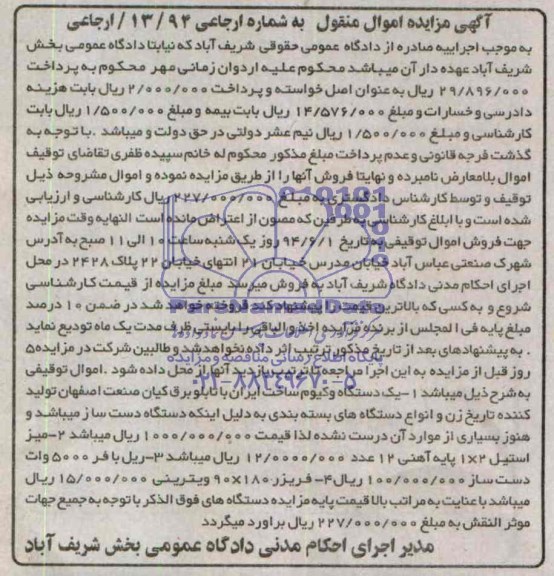 آگهی مزایده اموال منقول به شماره ارجاعی ۹۴ / ۱۳ / ارجاعی
به موجب اجراییه صادره از دادگاه عمومی حقوقی شریف آباد که نیابتا دادگاه عمومی بخش
شریف آباد عهده دار آن میباشد محکوم علیه اردوان زمانی مهر محکوم به پرداخت
۲۹/۸۹۶/۰۰۰ ریال به عنوان اصل خواسته و پرداخت ۲/۰۰۰/۰۰۰ ریال بابت هزینه
دادرسی و خسارات و مبلغ ۱۴/۵۷۶/۰۰۰ ریال بابت بیمه و مبلغ ۱/۵۰۰/۰۰۰ ریال بابت
کارشناسی و مبلغ ۱/۵۰۰/۰۰۰ ریال نیم عشر دولتی در حق دولت و میباشد .با توجه به
گذشت فرجه قانونی و عدم پرداخت مبلغ مذکور محکوم له خانم سپیده ظفری تقاضای توقیف
اموال بلامعارض نامبرده و نهایتا فروش آنها را از طریق مزایده نموده و اموال مشروحه ذیل
توقیف و توسط کارشناس دادگستری به مبلغ ۲۲۷/۰۰۰/۰۰۰ ریال کارشناسی و ارزیابی
شده است و با ابلاغ کارشناسی به طرفین که مصون از اعتراض مانده است النهایه وقت مزایده
جهت فروش اموال توقیفی به تاریخ ۹۴/۶/۱ روز یک شنبه ساعت ۱۰ الی ۱۱ صبح به آدرس
شهرک صنعتی عباس آباد خیابان مدرس خیابان ۲۱ انتهای خیابان ۲۲ پلاک ۲۴۲۸ در محل
اجرای احکام مدنی دادگاه شریف آباد به فروش میرسد مبلغ مزایده از قیمت کارشناسی
شروع و به کسی که بالاترین قیمت را پیشنهاد کند فروخته خواهد شد در ضمن ۱۰ درصد
مبلغ پایه فی المجلس از برنده مزایده اخذ و الباقی را بایستی ظرف مدت یک ماه تودیع نماید
. به پیشنهادهای بعد از تاریخ مذکور ترتیب اثر داده نخواهد شد و طالبین شرکت در مزایده ۵
روز قبل از مزایده به این اجرا مراجعه تا ترتیب بازدید آنها از محل داده شود .اموال توقیفی
به شرح ذیل میباشد ۱-یک دستگاه وکیوم ساخت ایران با تابلو برق کیان صنعت اصفهان تولید
کننده تاریخ زن و انواع دستگاه های بسته بندی به دلیل اینکه دستگاه دست ساز میباشد و
هنوز بسیاری از موارد آن درست نشده لذا قیمت ۱۰۰۰/۰۰۰/۰۰۰ ریال میباشد ۲-میز
استیل ۲×۱ پایه آهنی ۱۲ عدد ۱۲/۰۰۰۰/۰۰۰ ریال میباشد ۳-ریل با فر ۵۰۰۰ وات
دست ساز ۱۰۰/۰۰۰/۰۰۰ ریال ۴- فریزر ۱۸۰×۹۰ ویترینی ۱۵/۰۰۰/۰۰۰ ریال
میباشد با عنایت به مراتب بالا قیمت پایه مزایده دستگاه های فوق الذکر با توجه به جمیع جهات
موثر النقش به مبلغ ۲۲۷/۰۰۰/۰۰۰ ریال براورد میگردد
مدیر اجرای احکام مدنی دادگاه عمومی بخش شریف آباد
پایگاه اطلاع رسانی مناقصه و مزایده
۰۲۱-۸۸۳۴۹۶۷۰-۵